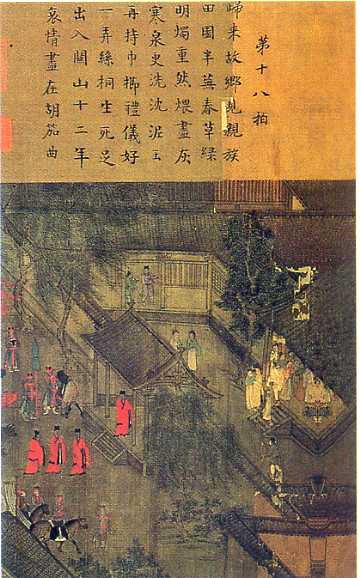 第十八拍
歸来故鄉見親族
田園半蕪春草綠
明燭重然煨盡灰
寒泉更洗沈泥玉
再持巾櫛禮儀好
一弄絲桐生死足
出入關山十二年
哀情盡在胡笳曲